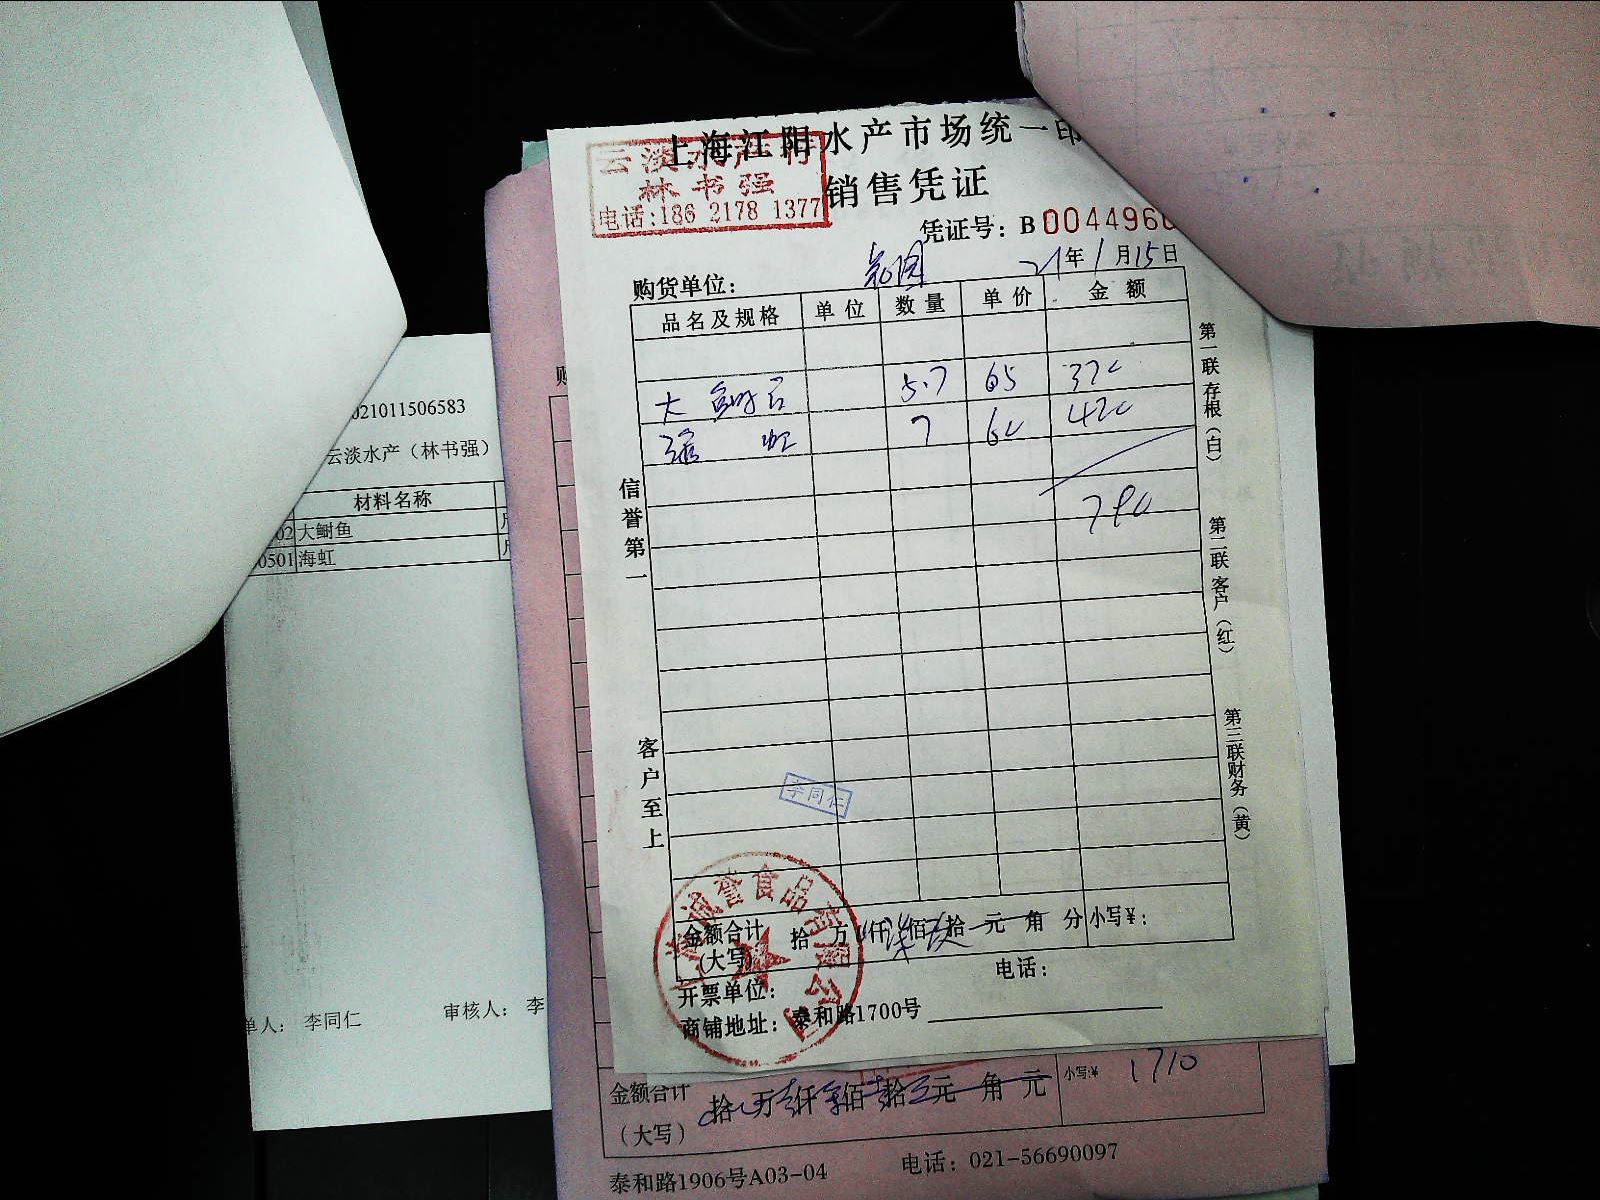 上海江阳水产市场统一印
云淡水产行
林书强
电话:186 2178 1377
销售凭证
凭证号: B 004496
购货单位:
21年1月15日
品名及规格 单位 数量 单价 金额
大 鲥鱼 5.7 65 370
海虹 7 60 420
790
信誉第一
客户至上
第一联存根(白)
第二联客户(红)
第三联财务(黄)
李同仁
上海诚誉食品有限公司
金额合计(大写) 拾 万 仟 柒佰 玖拾 元 角 分 小写¥:
开票单位:
电话:
商铺地址: 泰和路1700号
021011506583
云淡水产（林书强）
材料名称
02 大鲥鱼
0501 海虹
单人: 李同仁
审核人: 李
购
金额合计(大写) 拾 万 仟 佰 拾 元 角 元 小写:¥ 1710
泰和路1906号A03-04
电话: 021-56690097